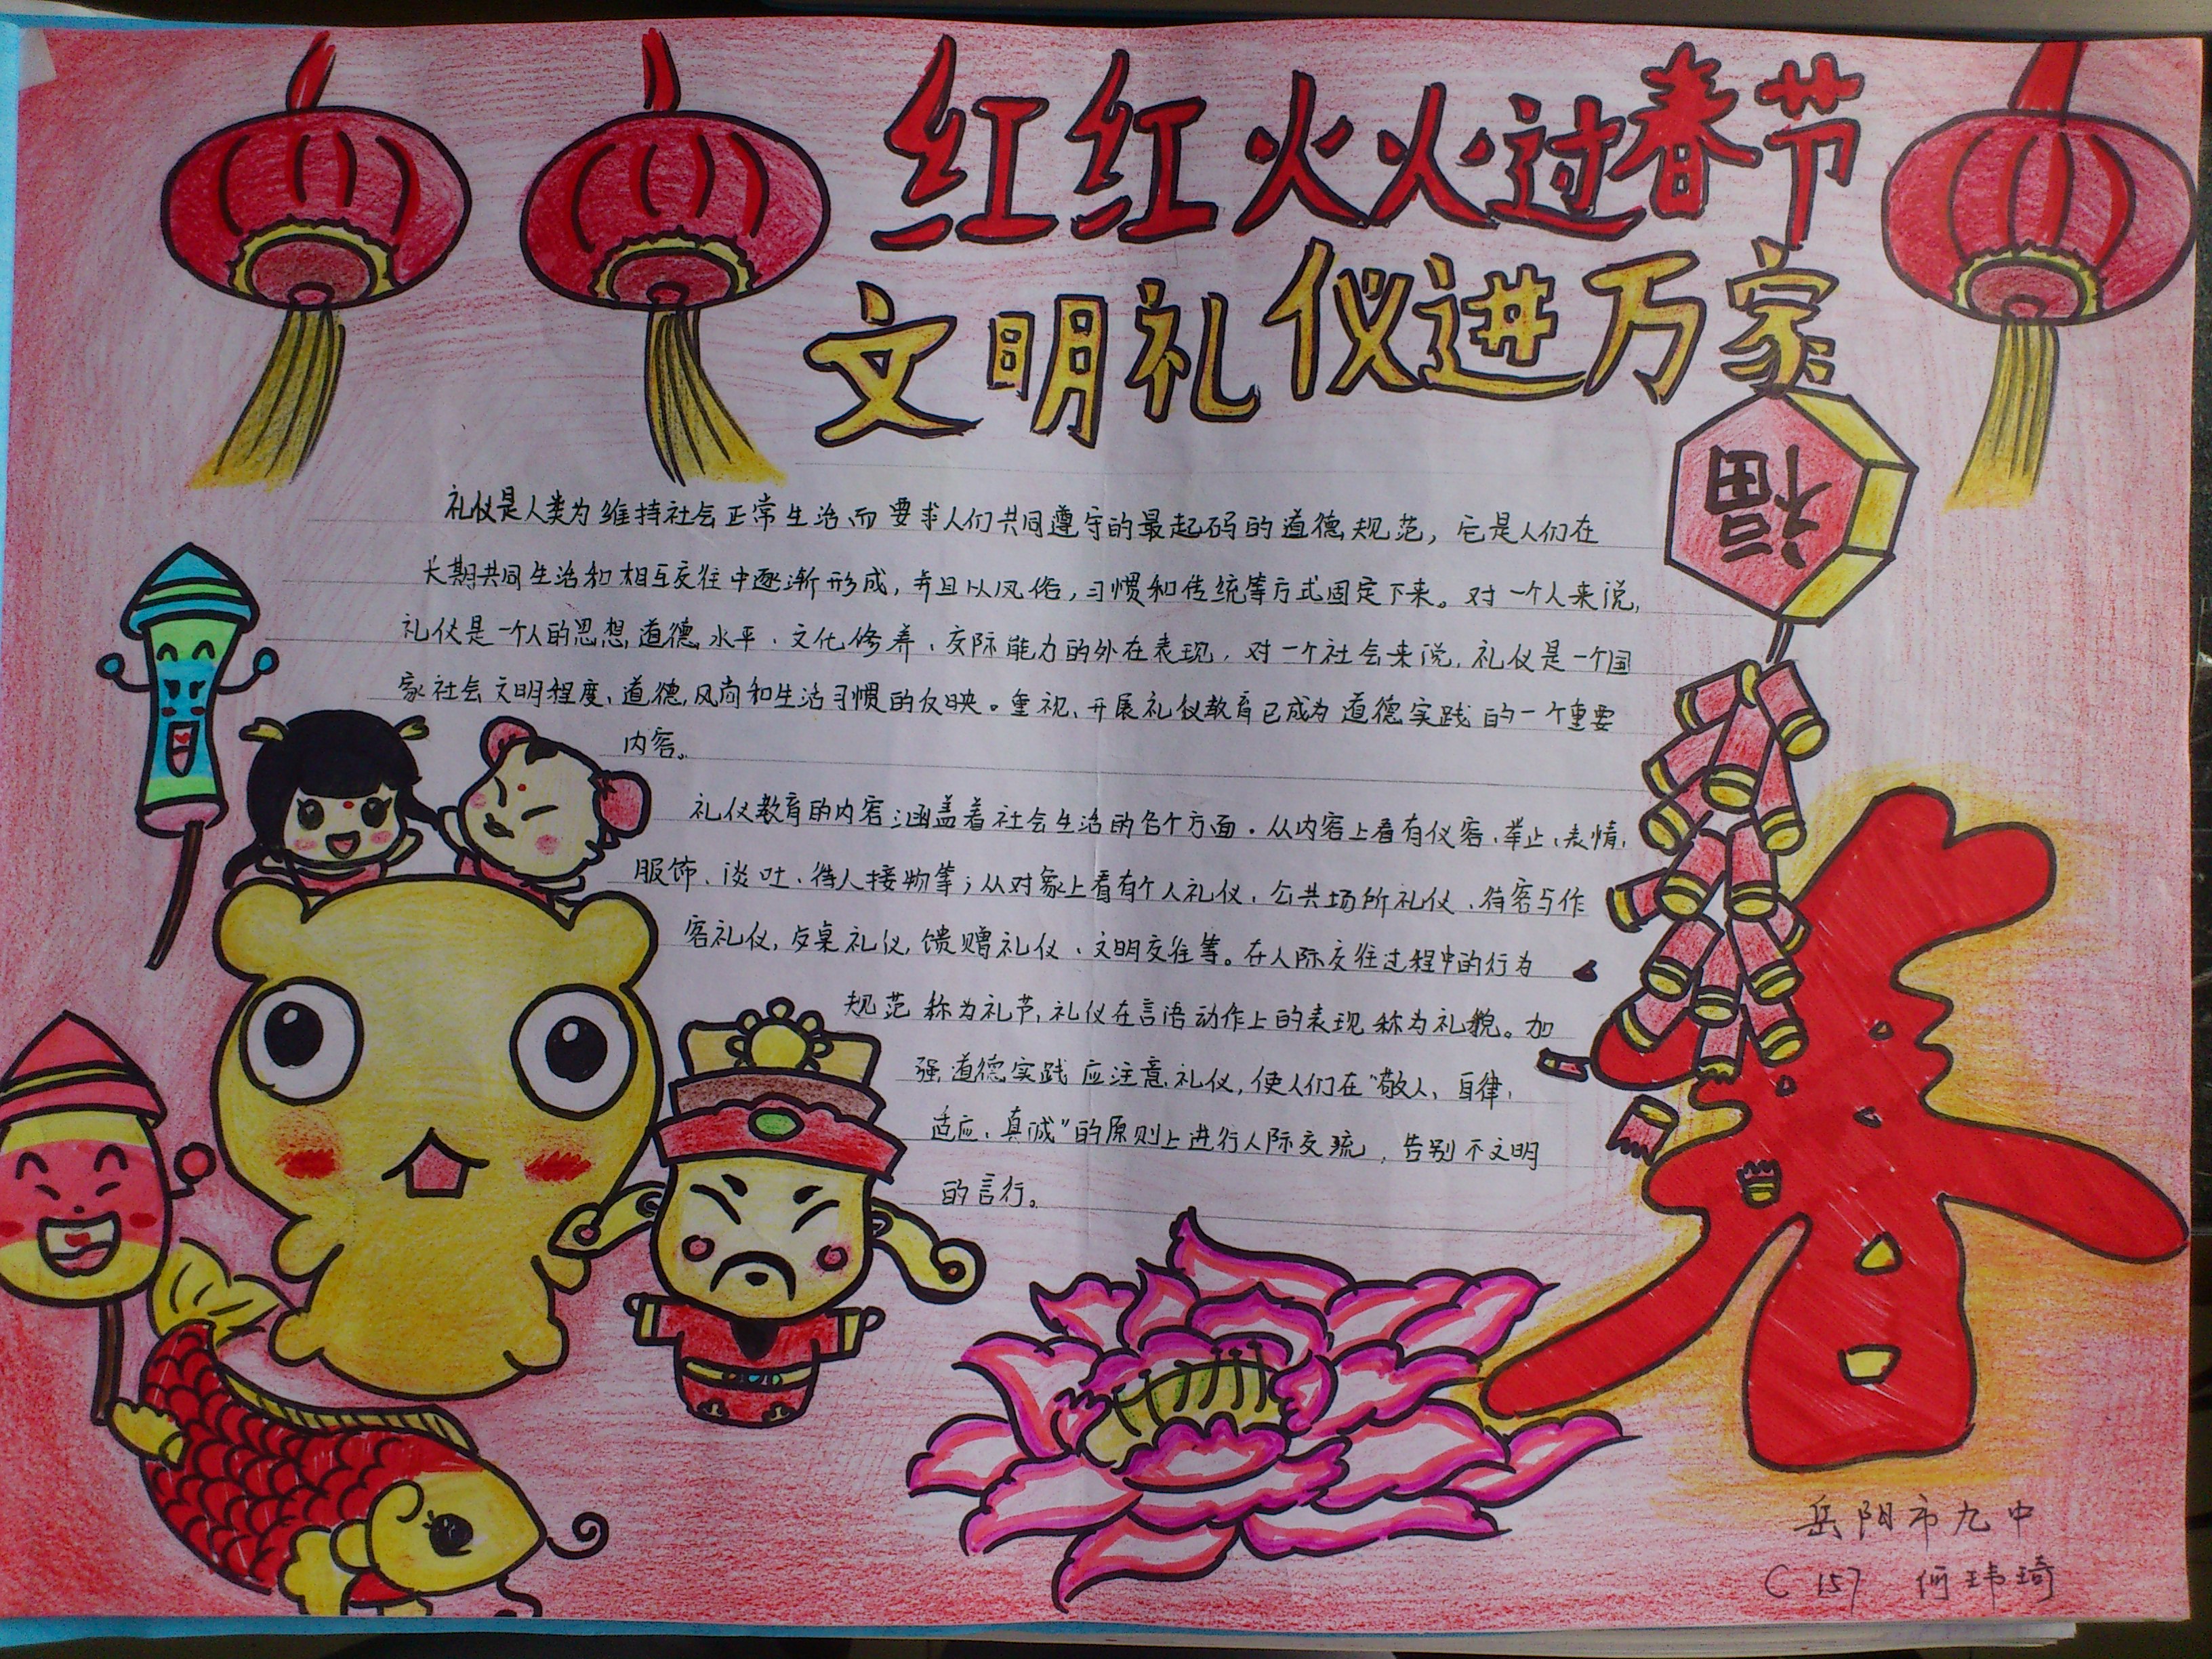 红红火火过春节
文明礼仪进万家
福
礼仪是人类为维持社会正常生活而要求人们共同遵守的最起码的道德规范，它是人们在
长期共同生活和相互交往中逐渐形成，并且以风俗，习惯和传统等方式固定下来。对一个人来说，
礼仪是一个人的思想道德水平、文化修养、交际能力的外在表现，对一个社会来说，礼仪是一个国
家社会文明程度、道德，风尚和生活习惯的反映。重视、开展礼仪教育已成为道德实践的一个重要
内容。
礼仪教育的内容涵盖着社会生活的各个方面。从内容上看有仪容、举止、表情，
服饰、谈吐、待人接物等；从对象上看有个人礼仪、公共场所礼仪、待客与作
客礼仪，餐桌礼仪，馈赠礼仪、文明交往等。在人际交往过程中的行为
规范称为礼节，礼仪在言语动作上的表现称为礼貌。加
强道德实践应注意礼仪，使人们在“敬人、自律，
适应、真诚”的原则上进行人际交流，告别不文明
的言行。
春
岳阳市九中
C157 何玮琦